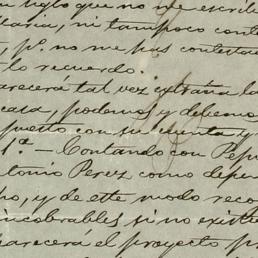 siglo que no me escribe
ilaria, ni tampoco conte
, pº. no me has contestad
lo recuerdo.
arecerá tal vez extraña la
casa, podemos y debemos
puesto con su cuenta y
1ª. — Contando con Pepe
tonio Perez como depen
ho, y de este modo reco
incobrables si no existie
arecerá el proyecto p